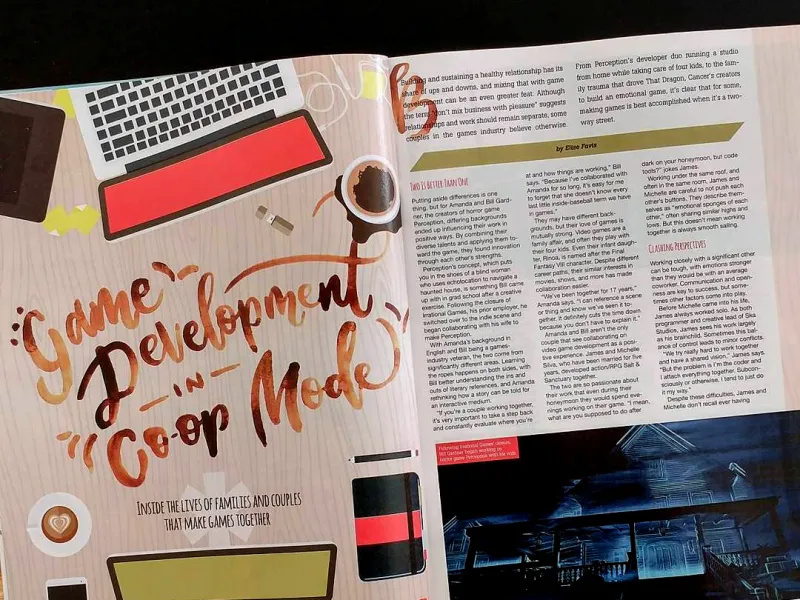 Game
Development
IN
Co-op Mode
INSIDE THE LIVES OF FAMILIES AND COUPLES
THAT MAKE GAMES TOGETHER
B
Building and sustaining a healthy relationship has its
share of ups and downs, and mixing that with game
development can be an even greater feat. Although
the term "don't mix business with pleasure" suggests
relationships and work should remain separate, some
couples in the games industry believe otherwise
From Perception's developer duo running a studio
from home while taking care of four kids, to the fam-
ily trauma that drove That Dragon, Cancer's creators
to build an emotional game, it's clear that for some,
making games is best accomplished when it's a two-
way street.
by Elise Favis
TWO IS BETTER THAN ONE
Putting aside differences is one
thing, but for Amanda and Bill Gard-
ner, the creators of horror game
Perception, differing backgrounds
ended up influencing their work in
positive ways. By combining their
diverse talents and applying them to-
ward the game, they found innovation
through each other's strengths.
Perception's concept, which puts
you in the shoes of a blind woman
who uses echolocation to navigate a
haunted house, is something Bill came
up with in grad school after a creative
exercise. Following the closure of
Irrational Games, his prior employer, he
switched over to the indie scene and
began collaborating with his wife to
make Perception.
With Amanda's background in
English and Bill being a games-
industry veteran, the two come from
significantly different areas. Learning
the ropes happens on both sides, with
Bill better understanding the ins and
outs of literary references, and Amanda
rethinking how a story can be told for
an interactive medium.
"If you're a couple working together,
it's very important to take a step back
and constantly evaluate where you're
at and how things are working," Bill
says. "Because I've collaborated with
Amanda for so long, it's easy for me
to forget that she doesn't know every
last little inside-baseball term we have
in games."
They may have different back-
grounds, but their love of games is
mutually strong. Video games are a
family affair, and often they play with
their four kids. Even their infant daugh-
ter, Rinoa, is named after the Final
Fantasy VIII character. Despite different
career paths, their similar interests in
movies, shows, and more has made
collaboration easier.
"We've been together for 17 years,"
says Amanda. "I can reference a scene
or thing and know we've seen it to-
gether. It definitely cuts the time down
because you don't have to explain it."
Amanda and Bill aren't the only
couple that see collaborating on
video game development as a posi-
tive experience. James and Michelle
Silva, who have been married for five
years, developed action/RPG Salt &
Sanctuary together.
The two are so passionate about
their work that even during their
honeymoon they would spend eve-
nings working on their game. "I mean,
what are you supposed to do after
dark on your honeymoon, but code
tools?" jokes James.
Working under the same roof, and
often in the same room, James and
Michelle are careful to not push each
other's buttons. They describe them-
selves as "emotional sponges of each
other," often sharing similar highs and
lows. But this doesn't mean working
together is always smooth sailing.
CLASHING PERSPECTIVES
Working closely with a significant other
can be tough, with emotions stronger
than they would be with an average
coworker. Communication and open-
ness are key to success, but some-
times other factors come into play.
Before Michelle came into his life,
James always worked solo. As both
programmer and creative lead of Ska
Studios, James sees his work largely
as his brainchild. Sometimes this bal-
ance of control leads to minor conflicts.
"We try really hard to work together
and have a shared vision," James says.
"But the problem is I'm the coder and
I attach everything together. Subcon-
sciously or otherwise, I tend to just do
it my way."
Despite these difficulties, James and
Michelle don't recall ever having
Following Irrational Games' closure,
Bill Gardner began working on
horror game Perception with his wife